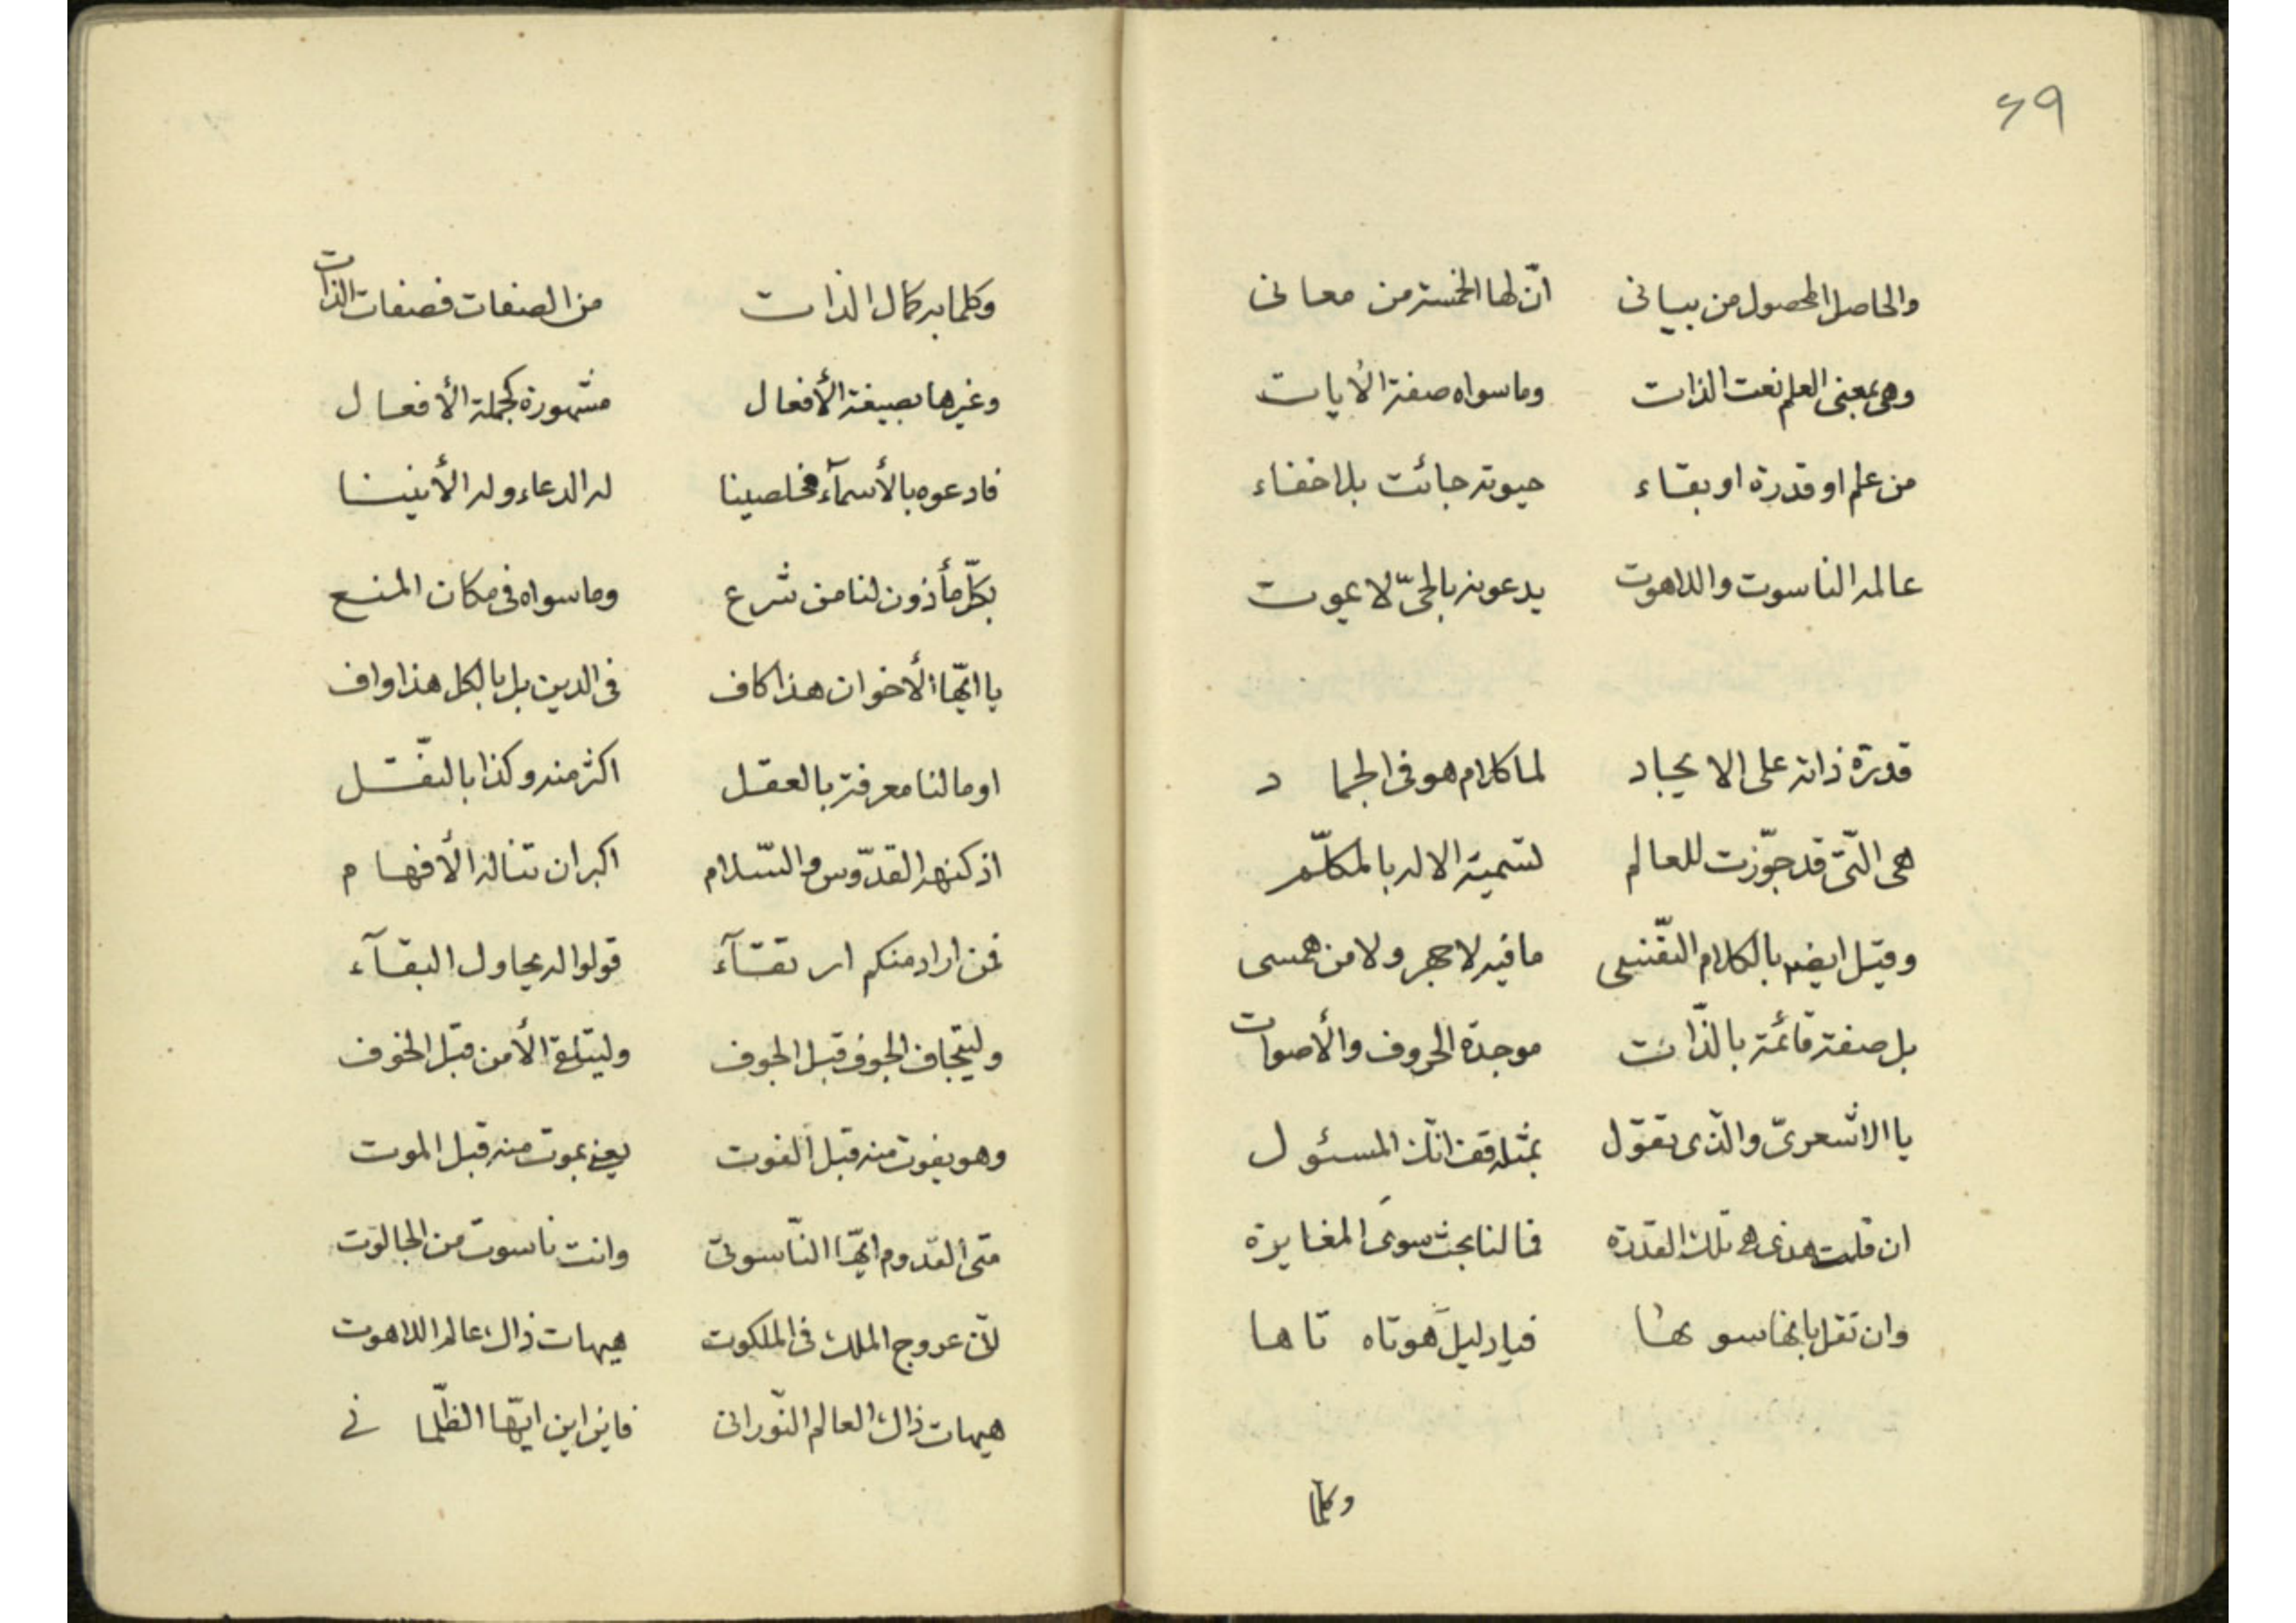 ۶۹
والحاصل المحصول من بیانی انّ لها الخمسة من معانی
وهی بمعنی العلم نعت الذات وما سواه صفة الأیات
من علم او قدرة او بقاء حیوته جائت بلا خفاء
عالمه الناسوت واللاهوت یدعونه بالحیّ لا یموت
قدرة ذاته علی الایجاد لما کلام هو فی الجماد
هی الّتی قد جوّزت للعالم تسمیة الاله بالمکلّم
وقیل ایضه بالکلام النفسی ما فیه لا جهر ولا من همسی
بل صفة قائمة بالذّات موجدة الحروف والأصوات
یا الاشعریّ والذی تقوّل بمثله قف انّک المسئول
ان قلت هذی هی تلک القدرة فما لنا بحث سوی المغایرة
وان تقل بانها سوىها فیا دلیل هو تاه تاها
وکلما
وکلما به کمال الذات من الصفات فصفات الذات
وغیرها بصیغة الأفعال مشهورة کجملة الأفعال
فادعوه بالأسمآء مخلصینا له الدعاء وله الأنینا
بکلّ مأذون لنا من شرع وما سواه فی مکان المنع
یا ایّها الأخوان هذا کاف فی الدین بل بالکل هذا واف
او ما لنا معرفة بالعقل اکثر منه وکذا بالنقل
اذ کنهه القدّوس والسّلام اکبر ان تناله الأفهام
فمن اراد منکم ارتقآء قولوا له یحاول البقآء
ولیتجاف الجوف قبل الجوف ولیتلق الأمن قبل الخوف
وهو یفوت منه قبل الفوت یعنی بموت منه قبل الموت
متی القدوم ایّها النّاسوتیّ وانت ناسوت من الجالوت
لأن عروج الملک فی الملکوت هیهات ذاک عالم اللاهوت
هیهات ذاک العالم النّورانی فاین این ایّها الظلّمانی